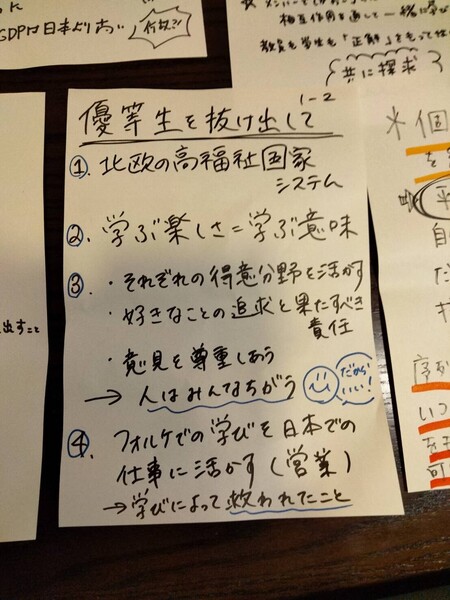 GDPは日本より高い
何故?!
相互作用を通して一緒に学び
教員も学生も「正解」をもって
共に探求
1-2
優等生を抜け出して
①. 北欧の高福祉国家
システム
②. 学ぶ楽しさ=学ぶ意味
③ ・それぞれの得意分野を活かす
・好きなことの追求と果たすべき
責任
・意見を尊重しあう
→ 人はみんなちがう
だから
いい!
④. フォルケでの学びを日本での
仕事に活かす(営業)
→学びによって救われたこと
出すこと
*個
を
平
自
だ
序列
いつ
可